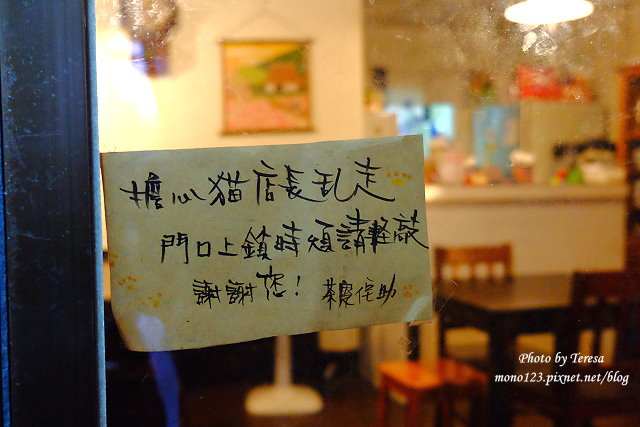 擔心猫店長乱走
門口上鎖時煩請輕敲
謝謝您! 茶寮侘助
Photo by Teresa
mono123.pixnet.net/blog